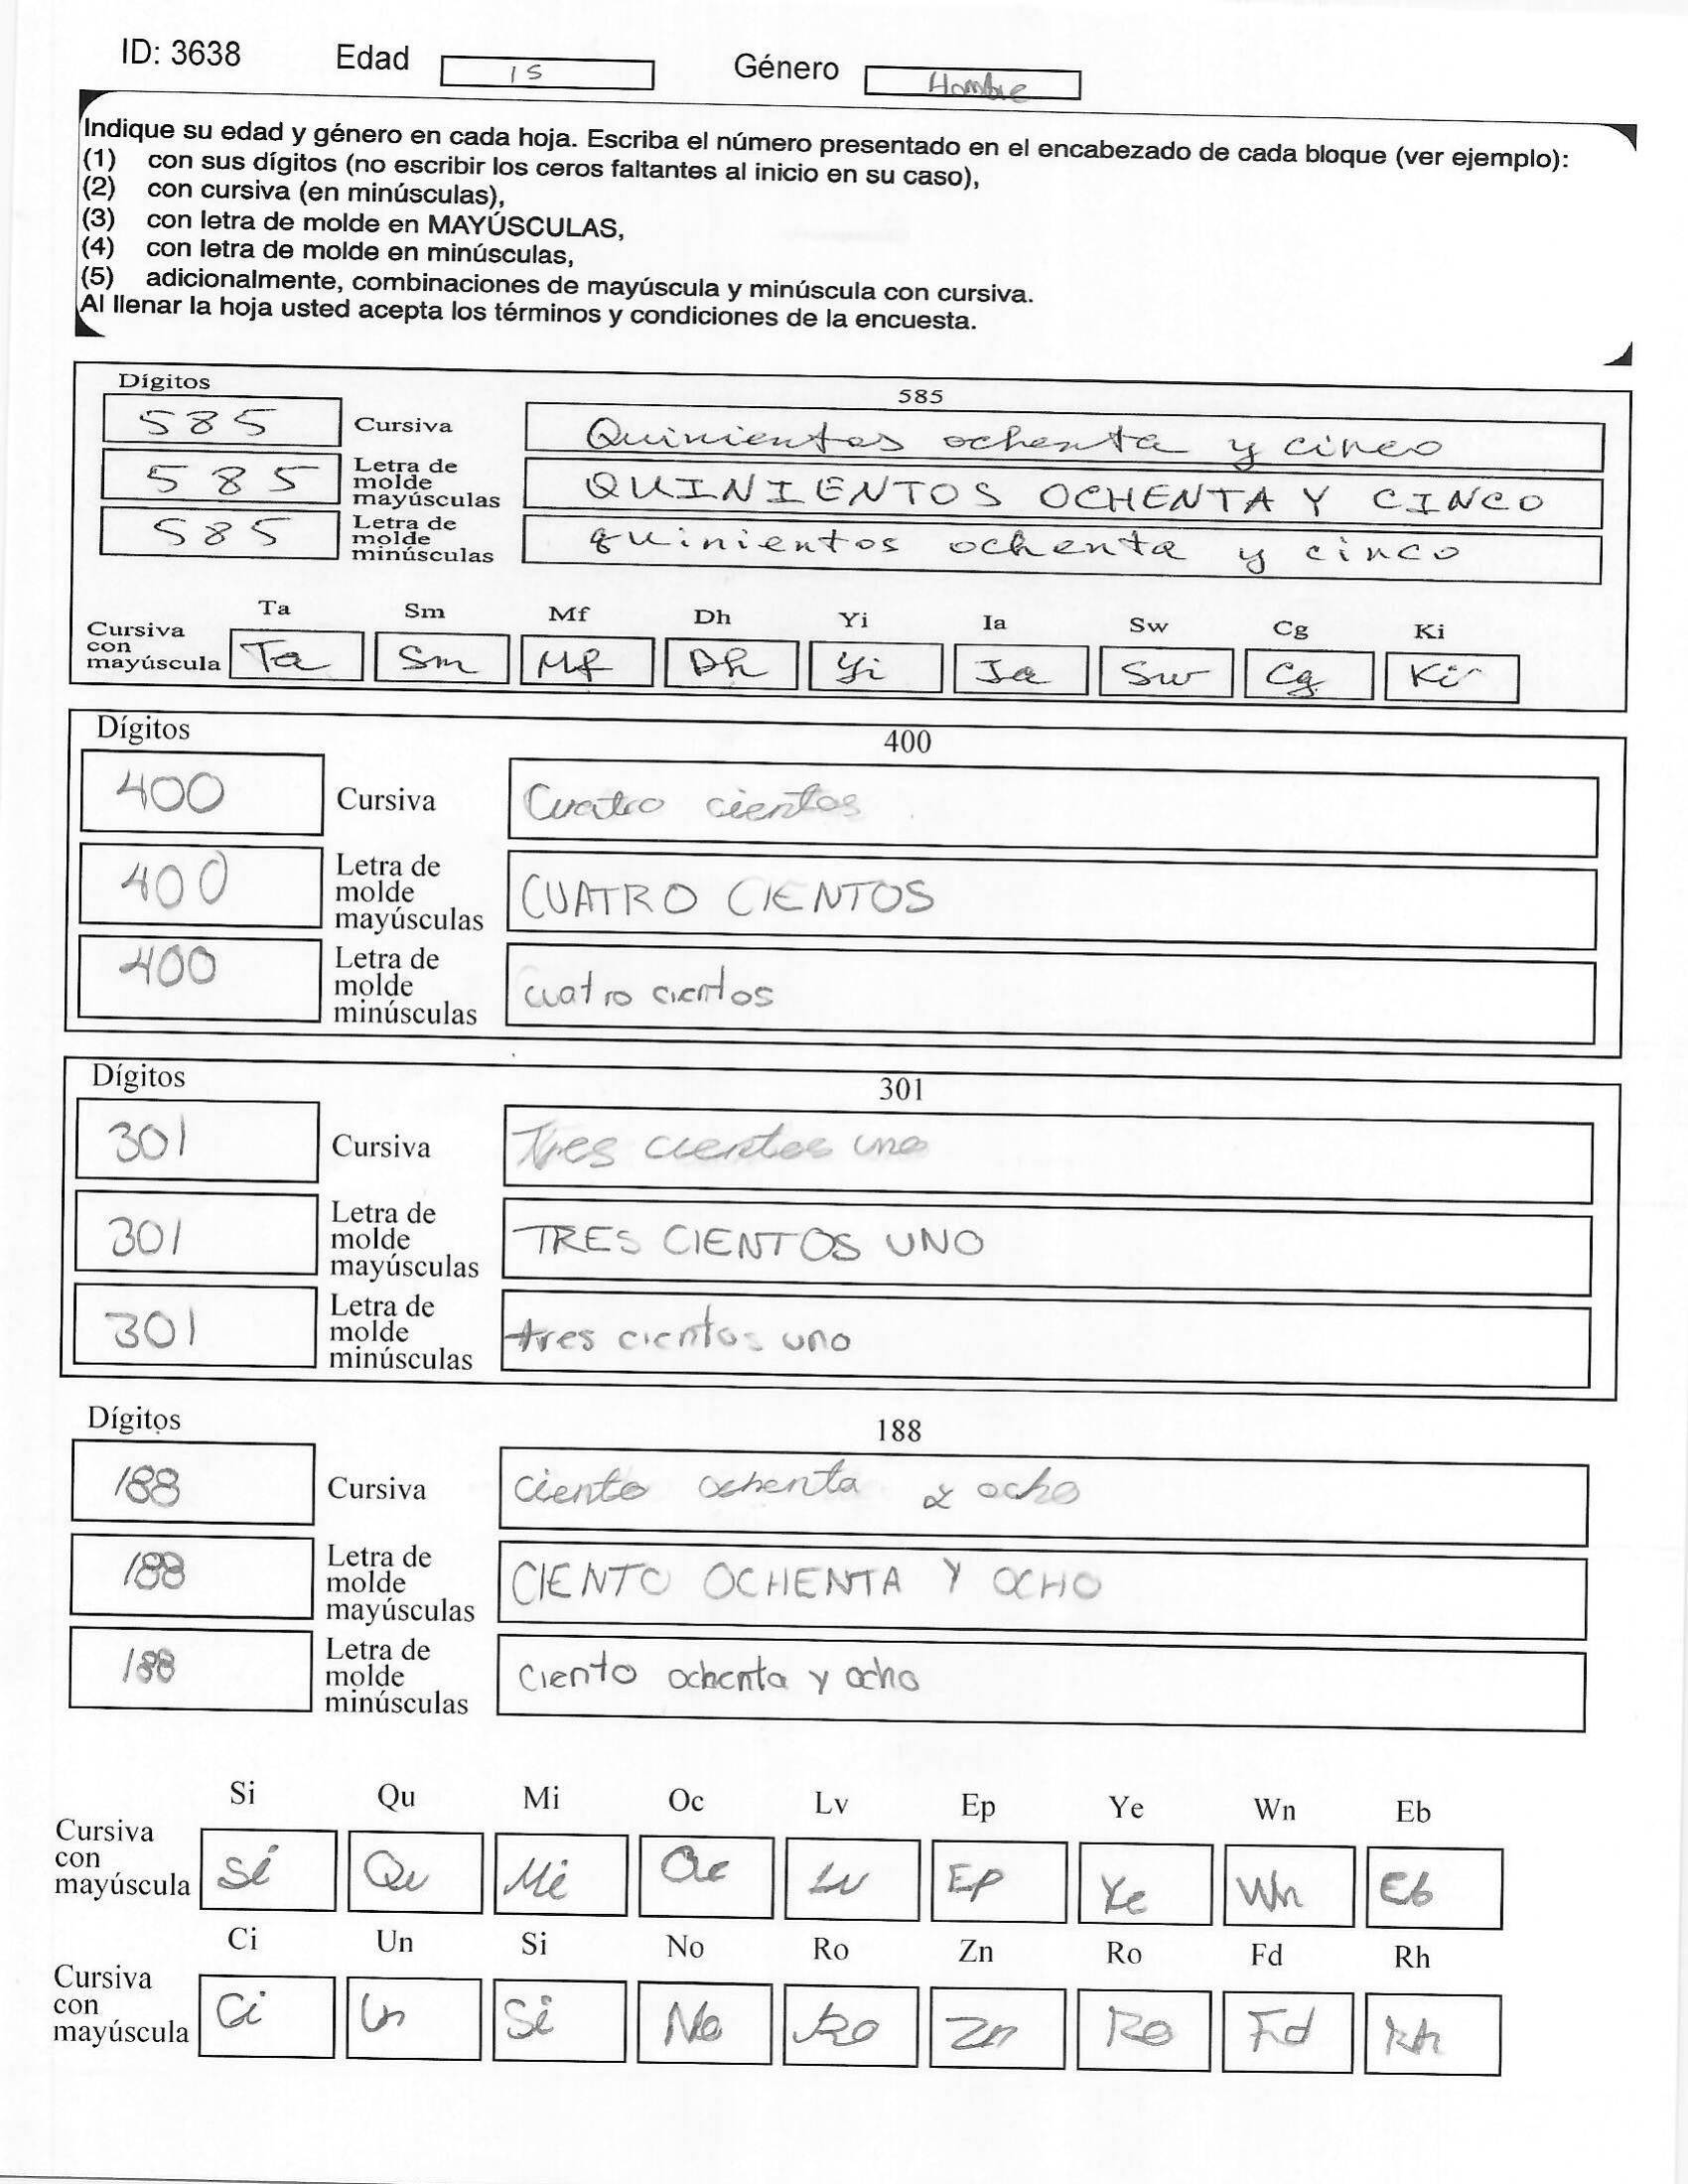 ID: 3638 Edad 15 Género Hombre
Indique su edad y género en cada hoja. Escriba el número presentado en el encabezado de cada bloque (ver ejemplo):
(1) con sus dígitos (no escribir los ceros faltantes al inicio en su caso),
(2) con cursiva (en minúsculas),
(3) con letra de molde en MAYÚSCULAS,
(4) con letra de molde en minúsculas,
(5) adicionalmente, combinaciones de mayúscula y minúscula con cursiva.
Al llenar la hoja usted acepta los términos y condiciones de la encuesta.
Dígitos 585
585 Cursiva Quinientos ochenta y cinco
585 Letra de molde mayúsculas QUINIENTOS OCHENTA Y CINCO
585 Letra de molde minúsculas quinientos ochenta y cinco
Ta Sm Mf Dh Yi Ia Sw Cg Ki
Cursiva con mayúscula Ta Sm Mf Dh Yi Ia Sw Cg Ki
Dígitos 400
400 Cursiva Cuatro cientos
400 Letra de molde mayúsculas CUATRO CIENTOS
400 Letra de molde minúsculas cuatro cientos
Dígitos 301
301 Cursiva Tres cientos uno
301 Letra de molde mayúsculas TRES CIENTOS UNO
301 Letra de molde minúsculas tres cientos uno
Dígitos 188
188 Cursiva ciento ochenta y ocho
188 Letra de molde mayúsculas CIENTO OCHENTA Y OCHO
188 Letra de molde minúsculas ciento ochenta y ocho
Si Qu Mi Oc Lv Ep Ye Wn Eb
Cursiva con mayúscula Si Qu Mi Oc Lv Ep Ye Wn Eb
Ci Un Si No Ro Zn Ro Fd Rh
Cursiva con mayúscula Ci Un Si No Ro Zn Ro Fd Rh